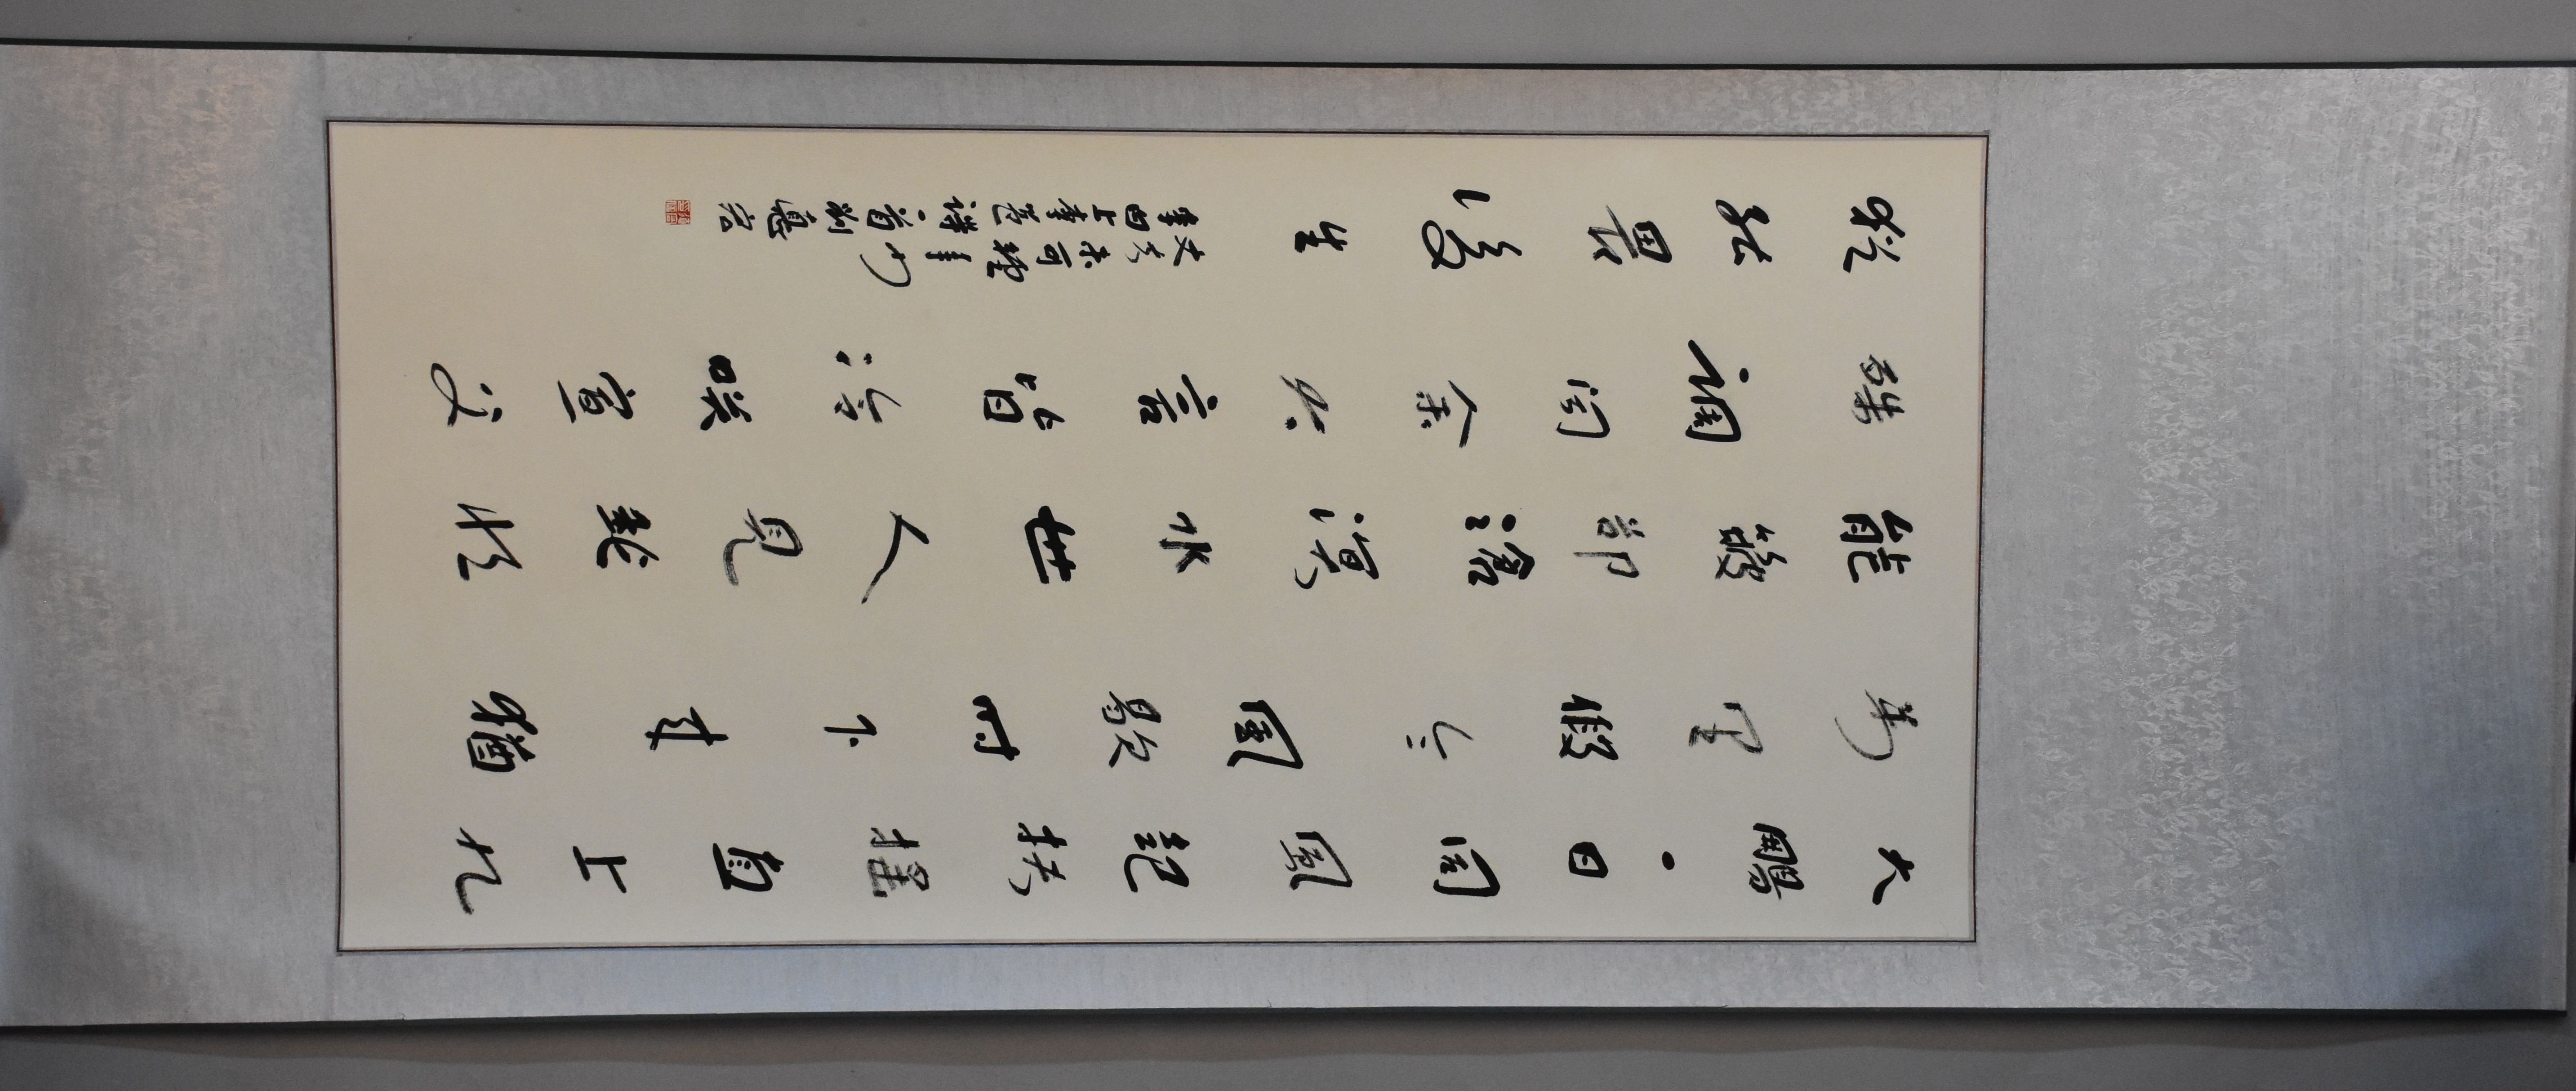 大鵬一日同風起扶搖直上九
萬里假令風歇時下来猶
能簸却滄溟水世人見我恒
殊調聞余大言皆冷咲宣父
猶能畏後生
丈夫未可輕年少
李白上李邕詩一首 劉